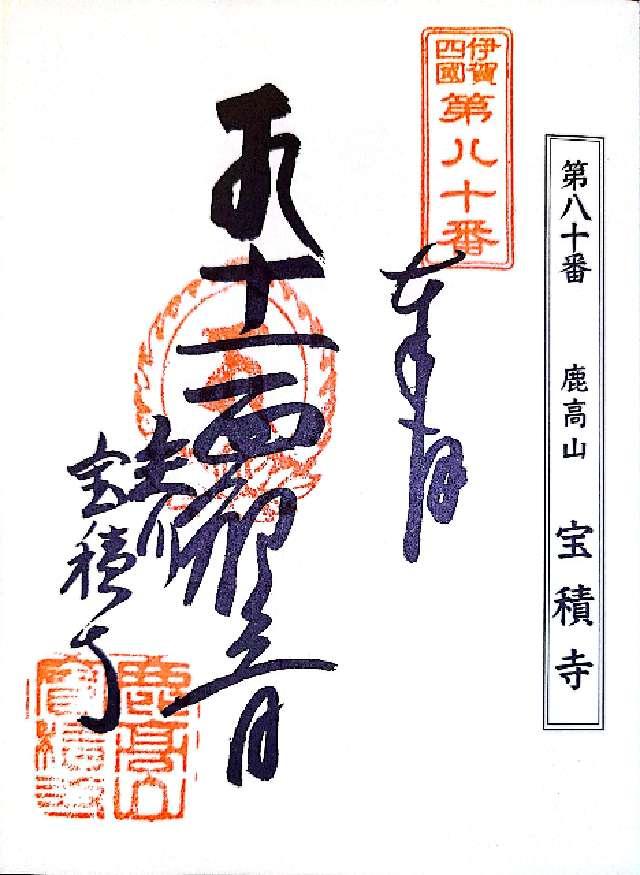 第八十番 鹿高山 宝積寺
伊賀
四國
第八十番
奉拝
十一面観世音
宝積寺
鹿高山
寶積寺